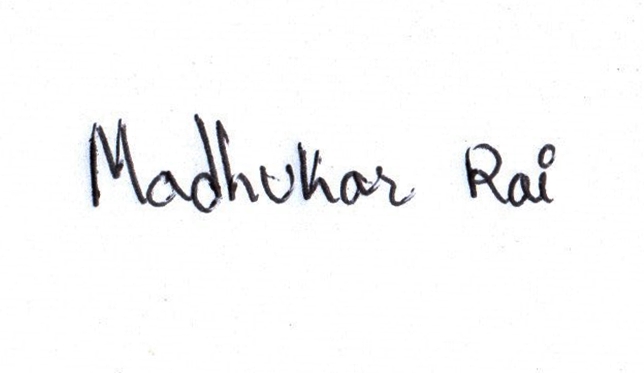 Madhukar Rai